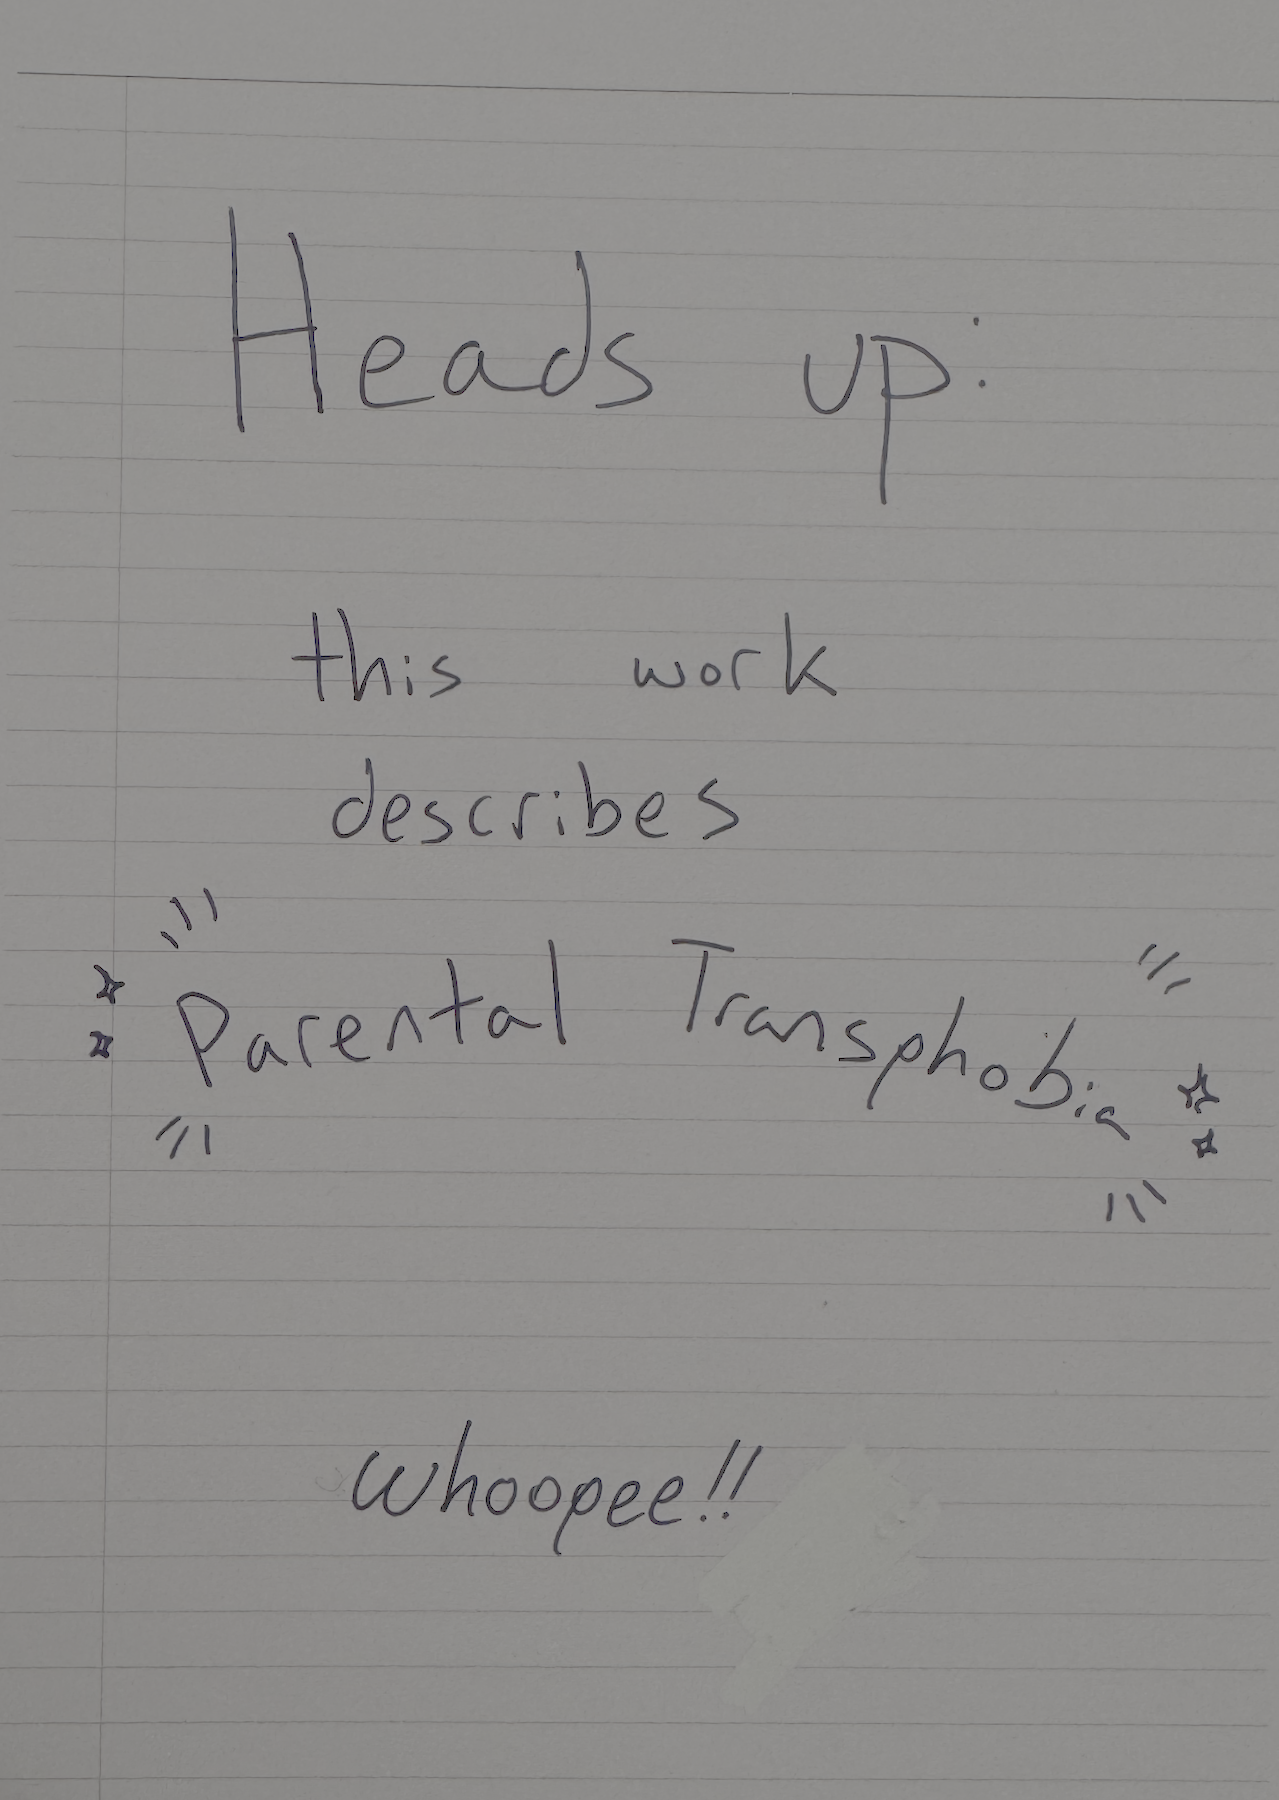 Heads up:
this work
describes
Parental Transphobia
whoopee!!